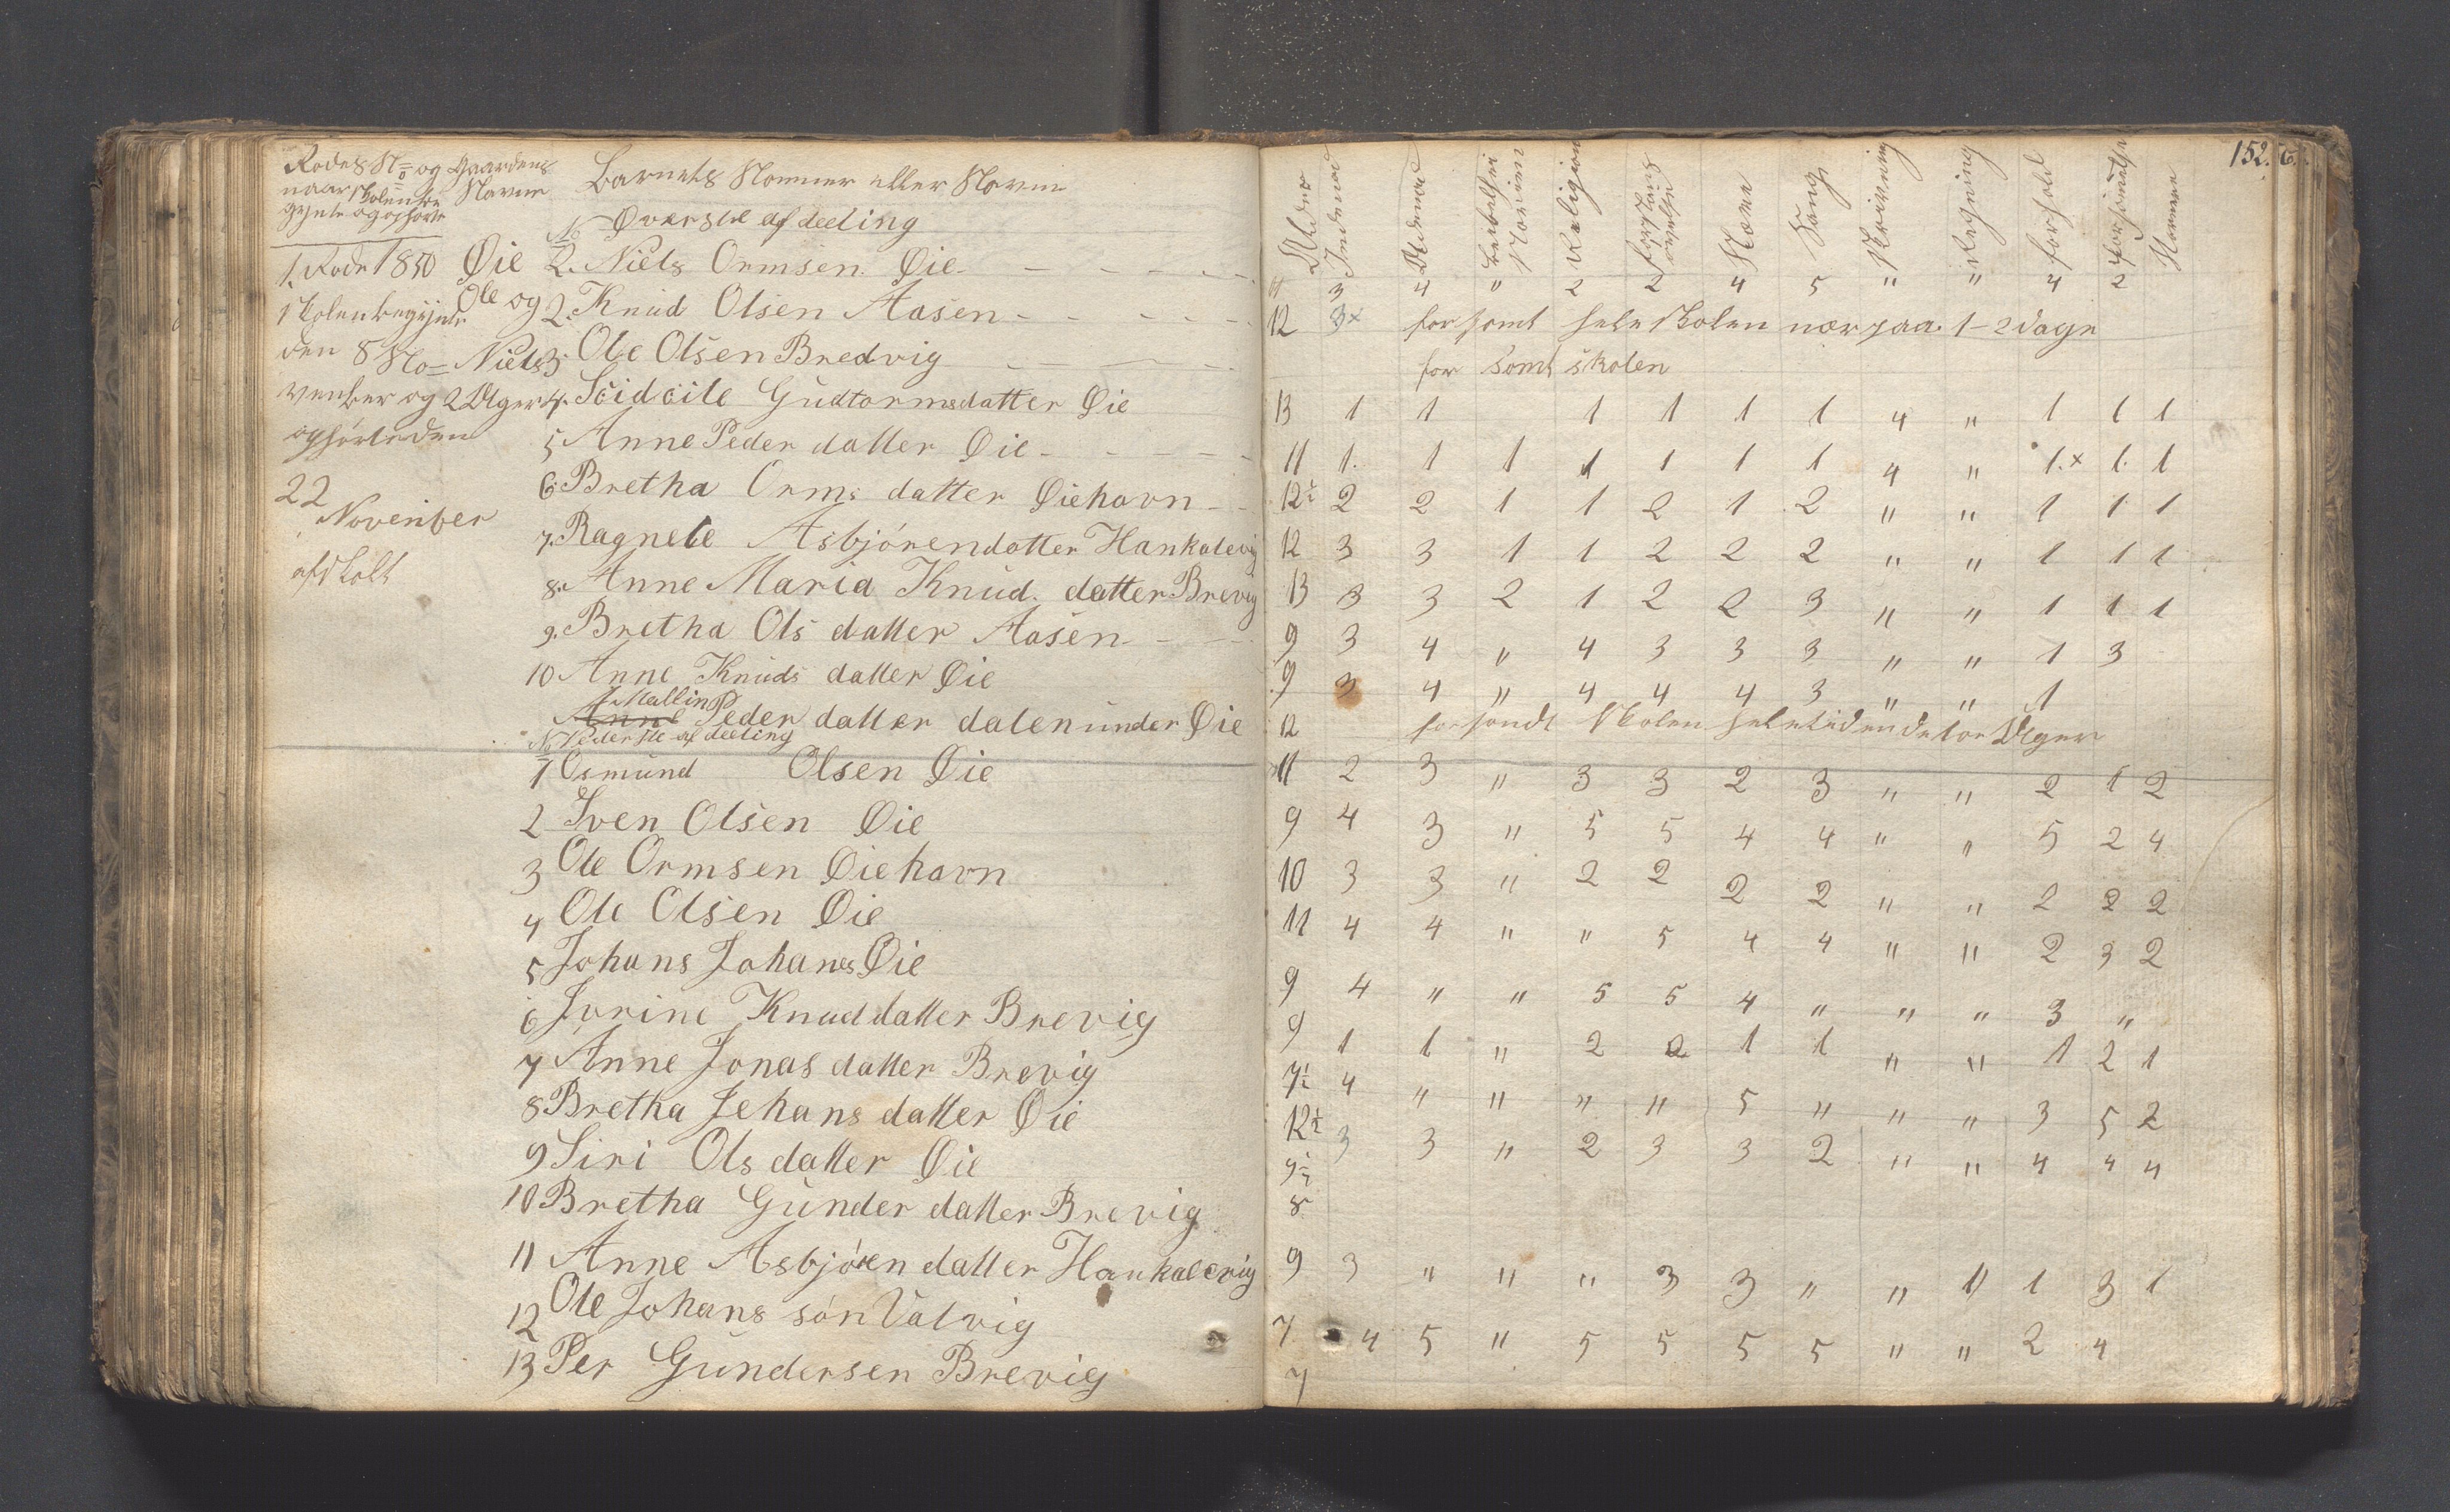 Rodes No og Gaardens
naar Skolen be Navne
gynte og ophørte
Barnets Nomner eller Navne
No Øverste afdeeling
1. Rode 1850 Øie
Skolen begynte Ole og
den 8 No= Niels
vember og 2 Uger
ophørte den
22
November
afholt
2. Niels Ormsen Øie
2. Knud Olsen Aasen
3. Ole Olsen Bredvig
4. Gudtormsdatter Øie
5 Anne Peder datter Øie
6. Bretha Orms datter Øiehavn
7. Ragnele Asbjörendotter Hankalevig
8. Anne Maria Knud. datter Brevig
9. Bretha Ols datter Aasen
10 Anne Knuds datter Øie
Mallin
Anne Peder datter dalen under Øie
No Nederste afdeeling
1 Osmund Olsen Øie
2 Sven Olsen Øie
3 Ole Ormsen Øiehavn
4 Ole Olsen Øie
5 Johans Johanes Øie
6 Jorine Knud datter Brevig
7 Anne Jonas datter Brevig
8 Bretha Johans datter Øie
9 Siri Ols datter Øie
10 Bretha Gunder datter Brevig
11 Anne Asbjören datter Hankalevig
12 Ole Johans sön Valvig
13 Per Gundersen Brevig
152.
Alder
Indenad
Udenad
Bibelhi
storien
Religion
Forstands
øvelse
Næme
Sang
Skrivning
Regning
Forhold
Forsömelse
11 3 4 " 2 2 4 5 " " 4 2
12 3x forsomt hele Skolen nær paa 1-2 dage
for somt skolen
13 1 1 1 1 1 1 4 " 1 1 1
11 1. 1 1 1 1 1 1 4 " 1.x 1. 1
12½ 2 2 1 1 2 1 2 " " 1 1 1
12 3 3 1 1 2 2 2 " " 1 1 1
13 3 3 2 1 2 2 3 " " 1 1 1
9 3 4 " 4 3 3 3 " " 1 3
9 3 4 " 4 4 4 3 " " 1
12 forsomt Skolen hele tiden de toe Uger
11 2 3 " 3 3 2 3 " " 2 1 2
9 4 3 " 5 5 4 4 " " 5 2 4
10 3 3 " 2 2 2 2 " " 2 2 2
11 4 4 " " 5 4 4 " " 2 3 2
9 4 " " 5 5 4 " " " 3 "
9 1 1 " 2 2 1 1 " " 1 2 1
7½ 4 " " " " 5 " " " 3 5 2
12½ 3 3 " 2 3 3 2 " " 4 4 4
9½
8
9 3 " " " 3 3 " " " 1 3 1
7 4 5 " 5 5 5 5 " " 2 4
7